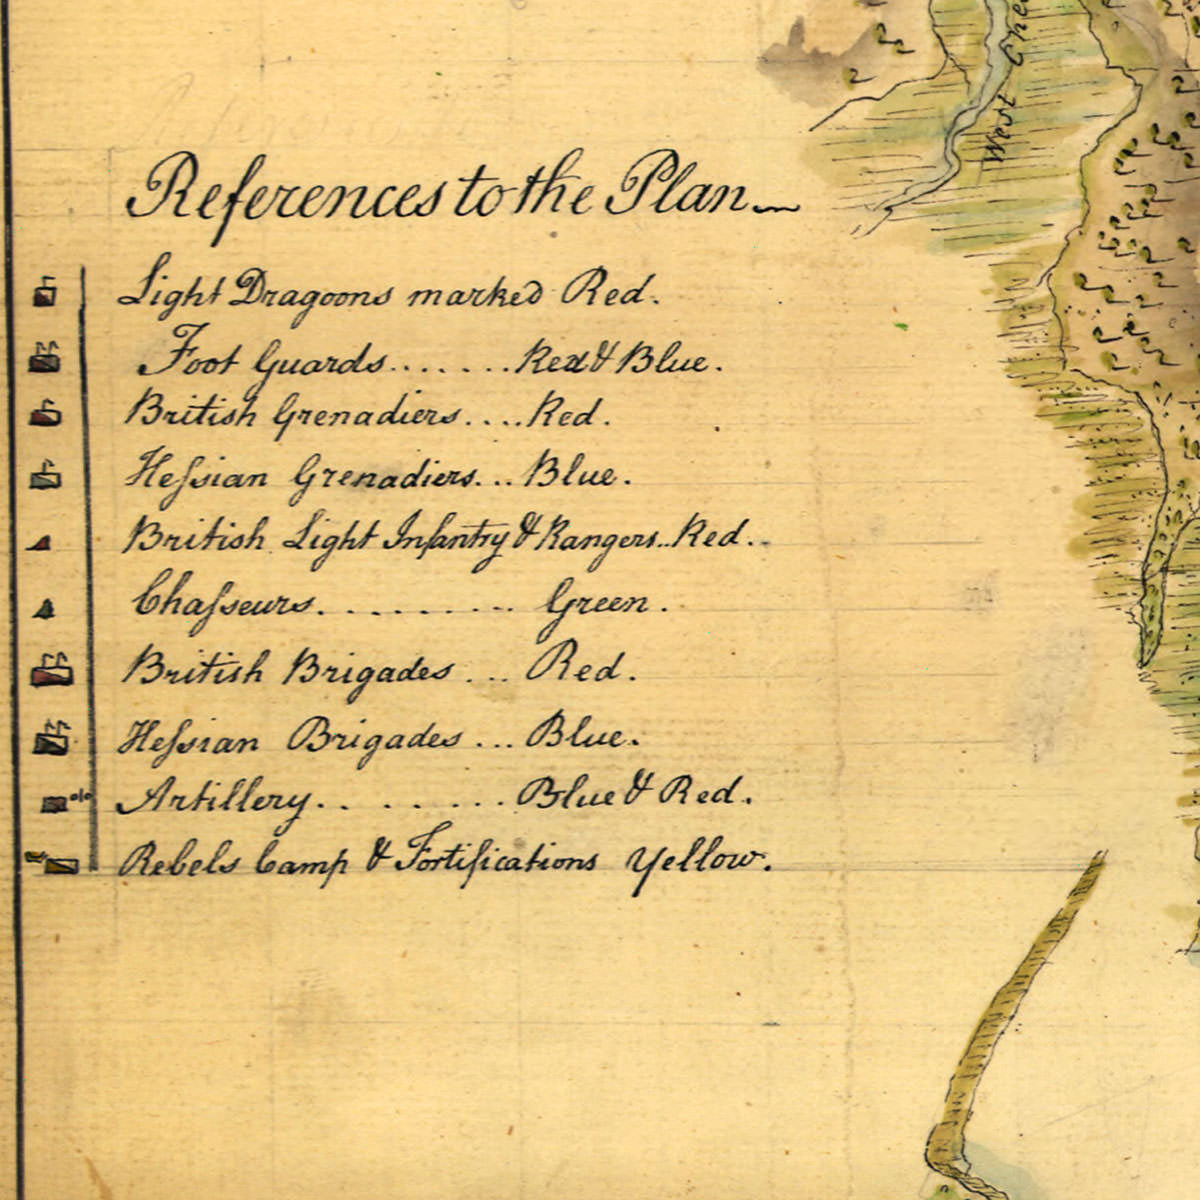 References to the Plan
Light Dragoons marked Red.
Foot Guards.......Red & Blue.
British Grenadiers....Red.
Heſsian Grenadiers...Blue.
British Light Infantry & Rangers..Red..
Chaſseurs.......... Green.
British Brigades... Red.
Heſsian Brigades...Blue.
Artillery........Blue & Red.
Rebels Camp & Fortifications Yellow.
West